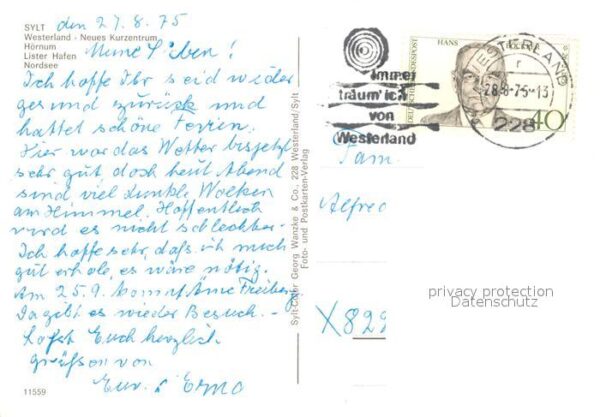 SYLT
Westerland - Neues Kurzentrum
Hörnum
Lister Hafen
Nordsee
den 27.8.75
Meine Lieben!
Ich hoffe Ihr seid wieder
gesund zurück und
hattet schöne Ferien.
Hier war das Wetter bis jetzt
sehr gut, doch heut Abend
sind viel dunkle Wolken
am Himmel. Hoffentlich
wird es nicht schlechter.
Ich hoffe sehr, daß ich mich
gut erhole, es wäre nötig.
Am 25.9. kommt Freiberg
Da gibt es wieder Besuch. -
Laßt Euch herzlich
grüßen von
11559
Sylt-Color Georg Wanzke & Co., 228 Westerland/Sylt
Foto- und Postkarten-Verlag
Immer
träum' ich
von
Westerland
HANS
DEUTSCHE BUNDESPOST
40
WESTERLAND
28.8.75-13
228
Fam
Alfred
X829
privacy protection
Datenschutz